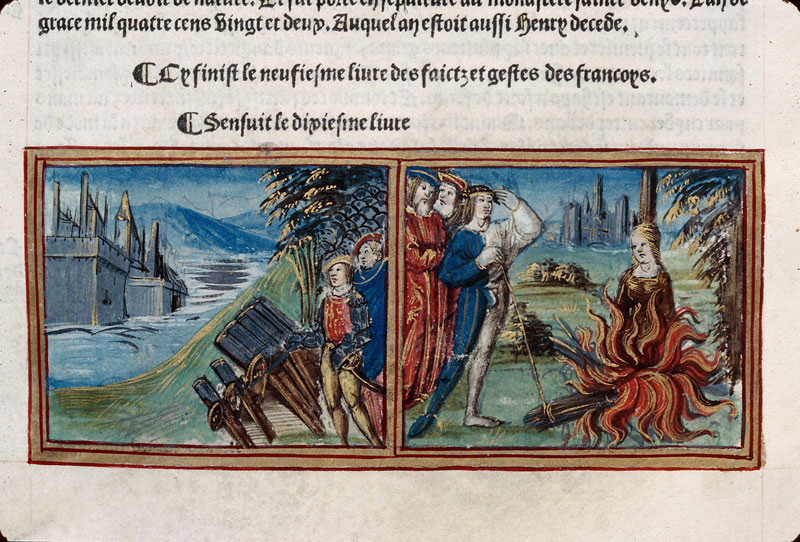 le dernier devoir de nature. Et fut porte en sepulture au monastere sainct denys. Lan de
grace mil quatre cens vingt et deux. Auquel an estoit aussi Henry decede.
¶ Cy finist le neufiesme livre des faictz et gestes des francoys.
¶ Sensuit le dixiesme livre